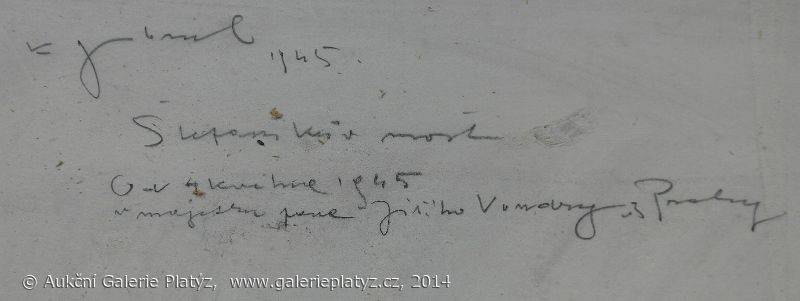 1945.
Štefanikův most
Od 4 května 1945
v majetku pana Jiřího Vondry z Prahy
© Aukční Galerie Platýz, www.galerieplatyz.cz, 2014